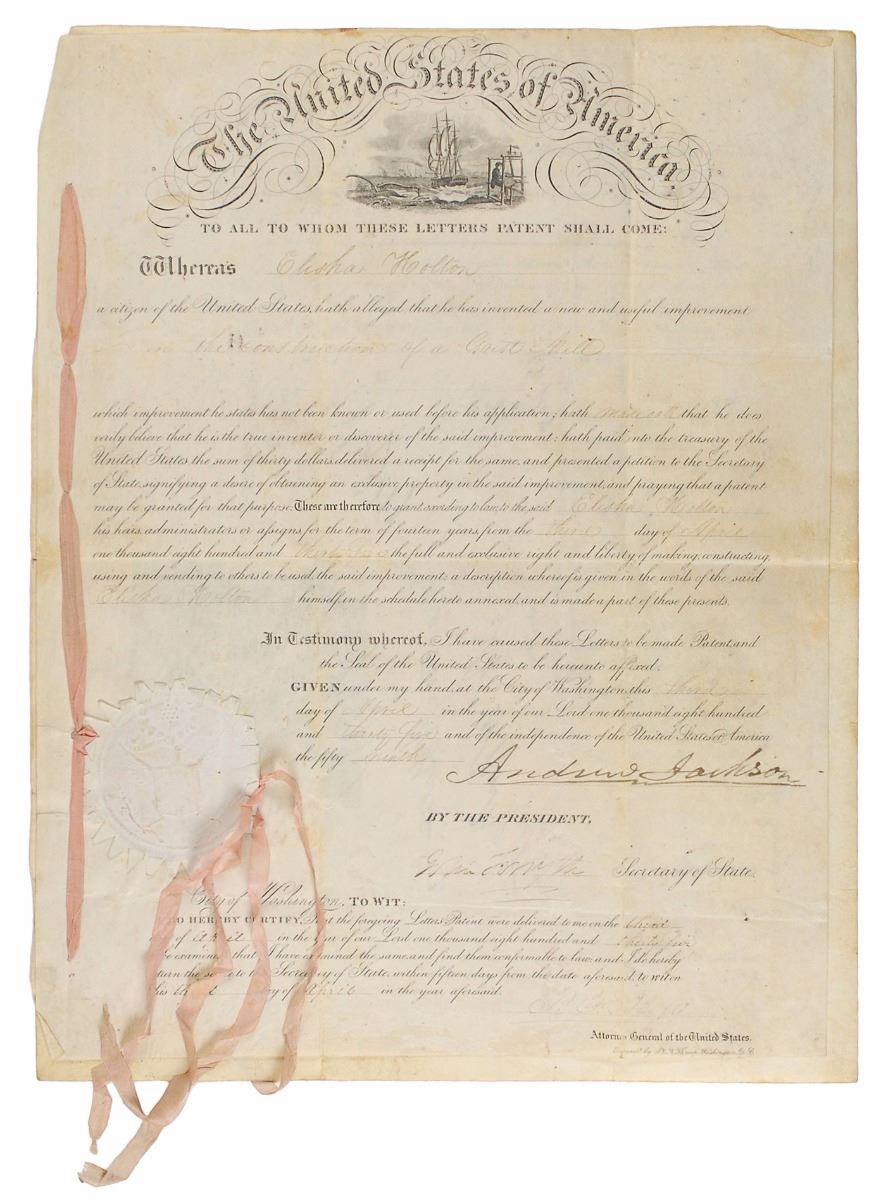 The United States of America.
TO ALL TO WHOM THESE LETTERS PATENT SHALL COME:
Whereas Elisha Holton
a citizen of the United States, hath alleged that he has invented a new and useful improvement
in the construction of a Grist Mill
which improvement he states has not been known or used before his application; hath made oath that he does
verily believe that he is the true inventor or discoverer of the said improvement; hath paid into the treasury of the
United States the sum of thirty dollars, delivered a receipt for the same, and presented a petition to the Secretary
of State, signifying a desire of obtaining an exclusive property in the said improvement, and praying that a patent
may be granted for that purpose. These are therefore to grant, according to law, to the said Elisha Holton
his heirs, administrators or assigns, for the term of fourteen years, from the third day of April
one thousand eight hundred and thirty five the full and exclusive right and liberty of making, constructing,
using and vending to others to be used, the said improvement; a description whereof is given in the words of the said
Elisha Holton himself, in the schedule hereto annexed, and is made a part of these presents.
In Testimony whereof, I have caused these Letters to be made Patent, and
the Seal of the United States to be hereunto affixed.
GIVEN under my hand, at the City of Washington, this third
day of April in the year of our Lord one thousand eight hundred
and thirty five and of the independence of the United States of America
the fifty ninth
Andrew Jackson
BY THE PRESIDENT,
Forsyth Secretary of State.
City of Washington, TO WIT:
DO HEREBY CERTIFY, That the foregoing Letters Patent were delivered to me on the third
of April in the year of our Lord one thousand eight hundred and thirty five
to be examined; that I have examined the same, and find them conformable to law; and I do hereby
return the same to the Secretary of State, within fifteen days from the date aforesaid, to wit: on
this third day of April in the year aforesaid.
Attorney General of the United States.
Engraved by Washington